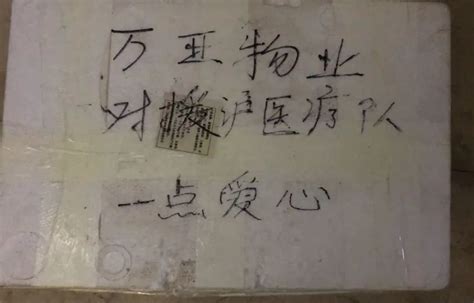 万亚物业
对援沪医疗队
一点爱心